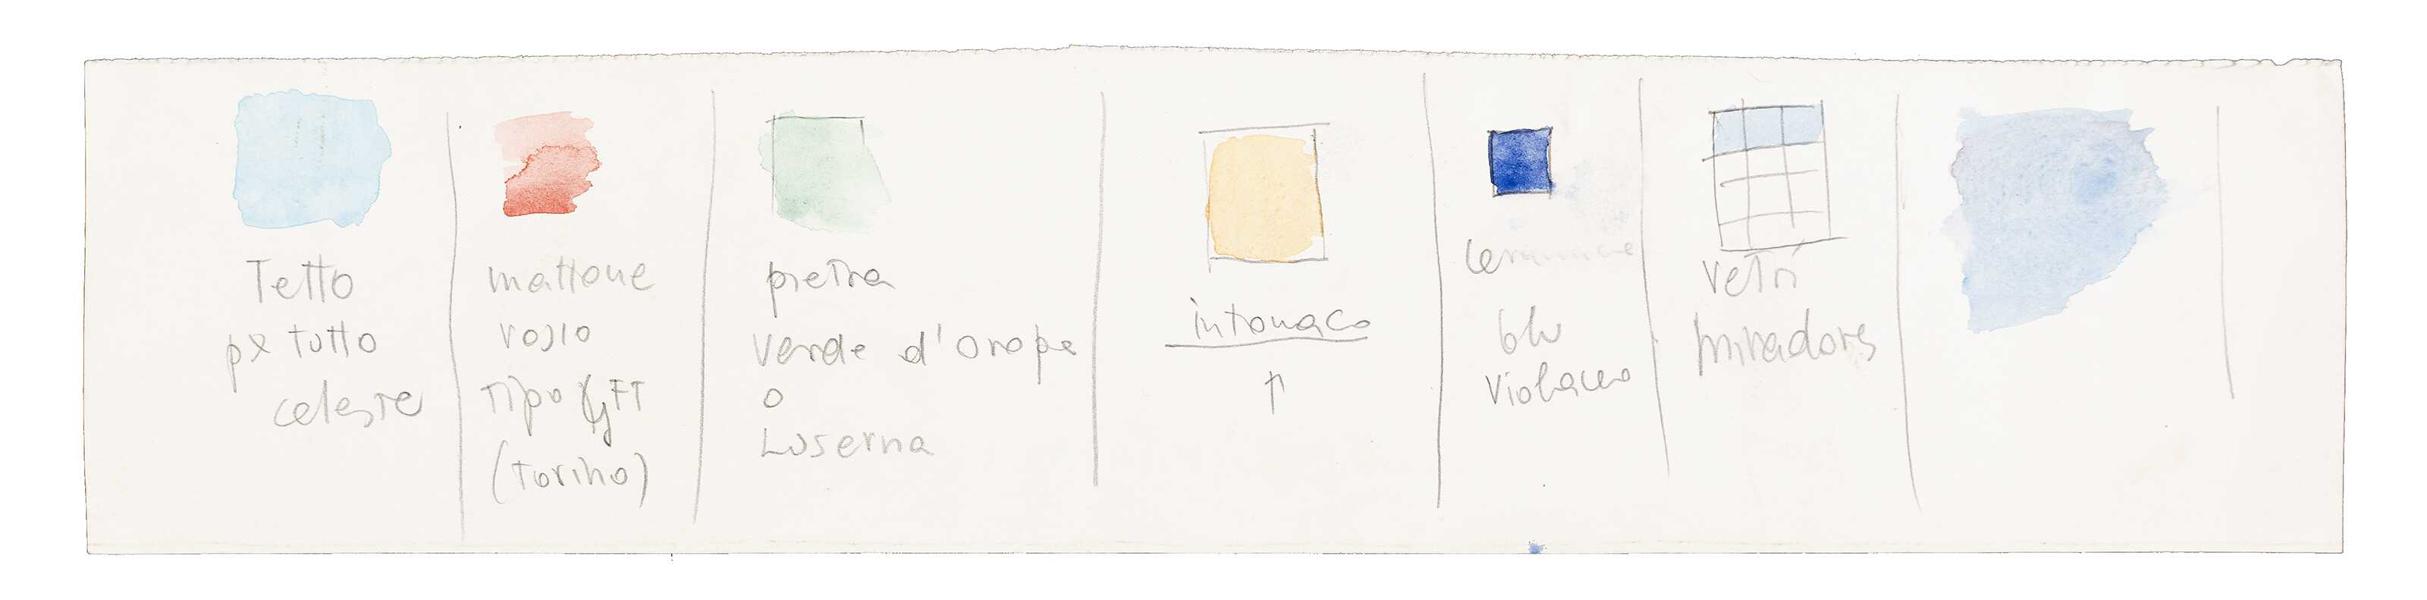 Tetto
px tutto
celeste
mattone
rosso
Tipo GFT
(Torino)
pietra
Verde d'Oropa
o
Luserna
intonaco
ceramiche
blu
Violaceo
Vetri
miradores